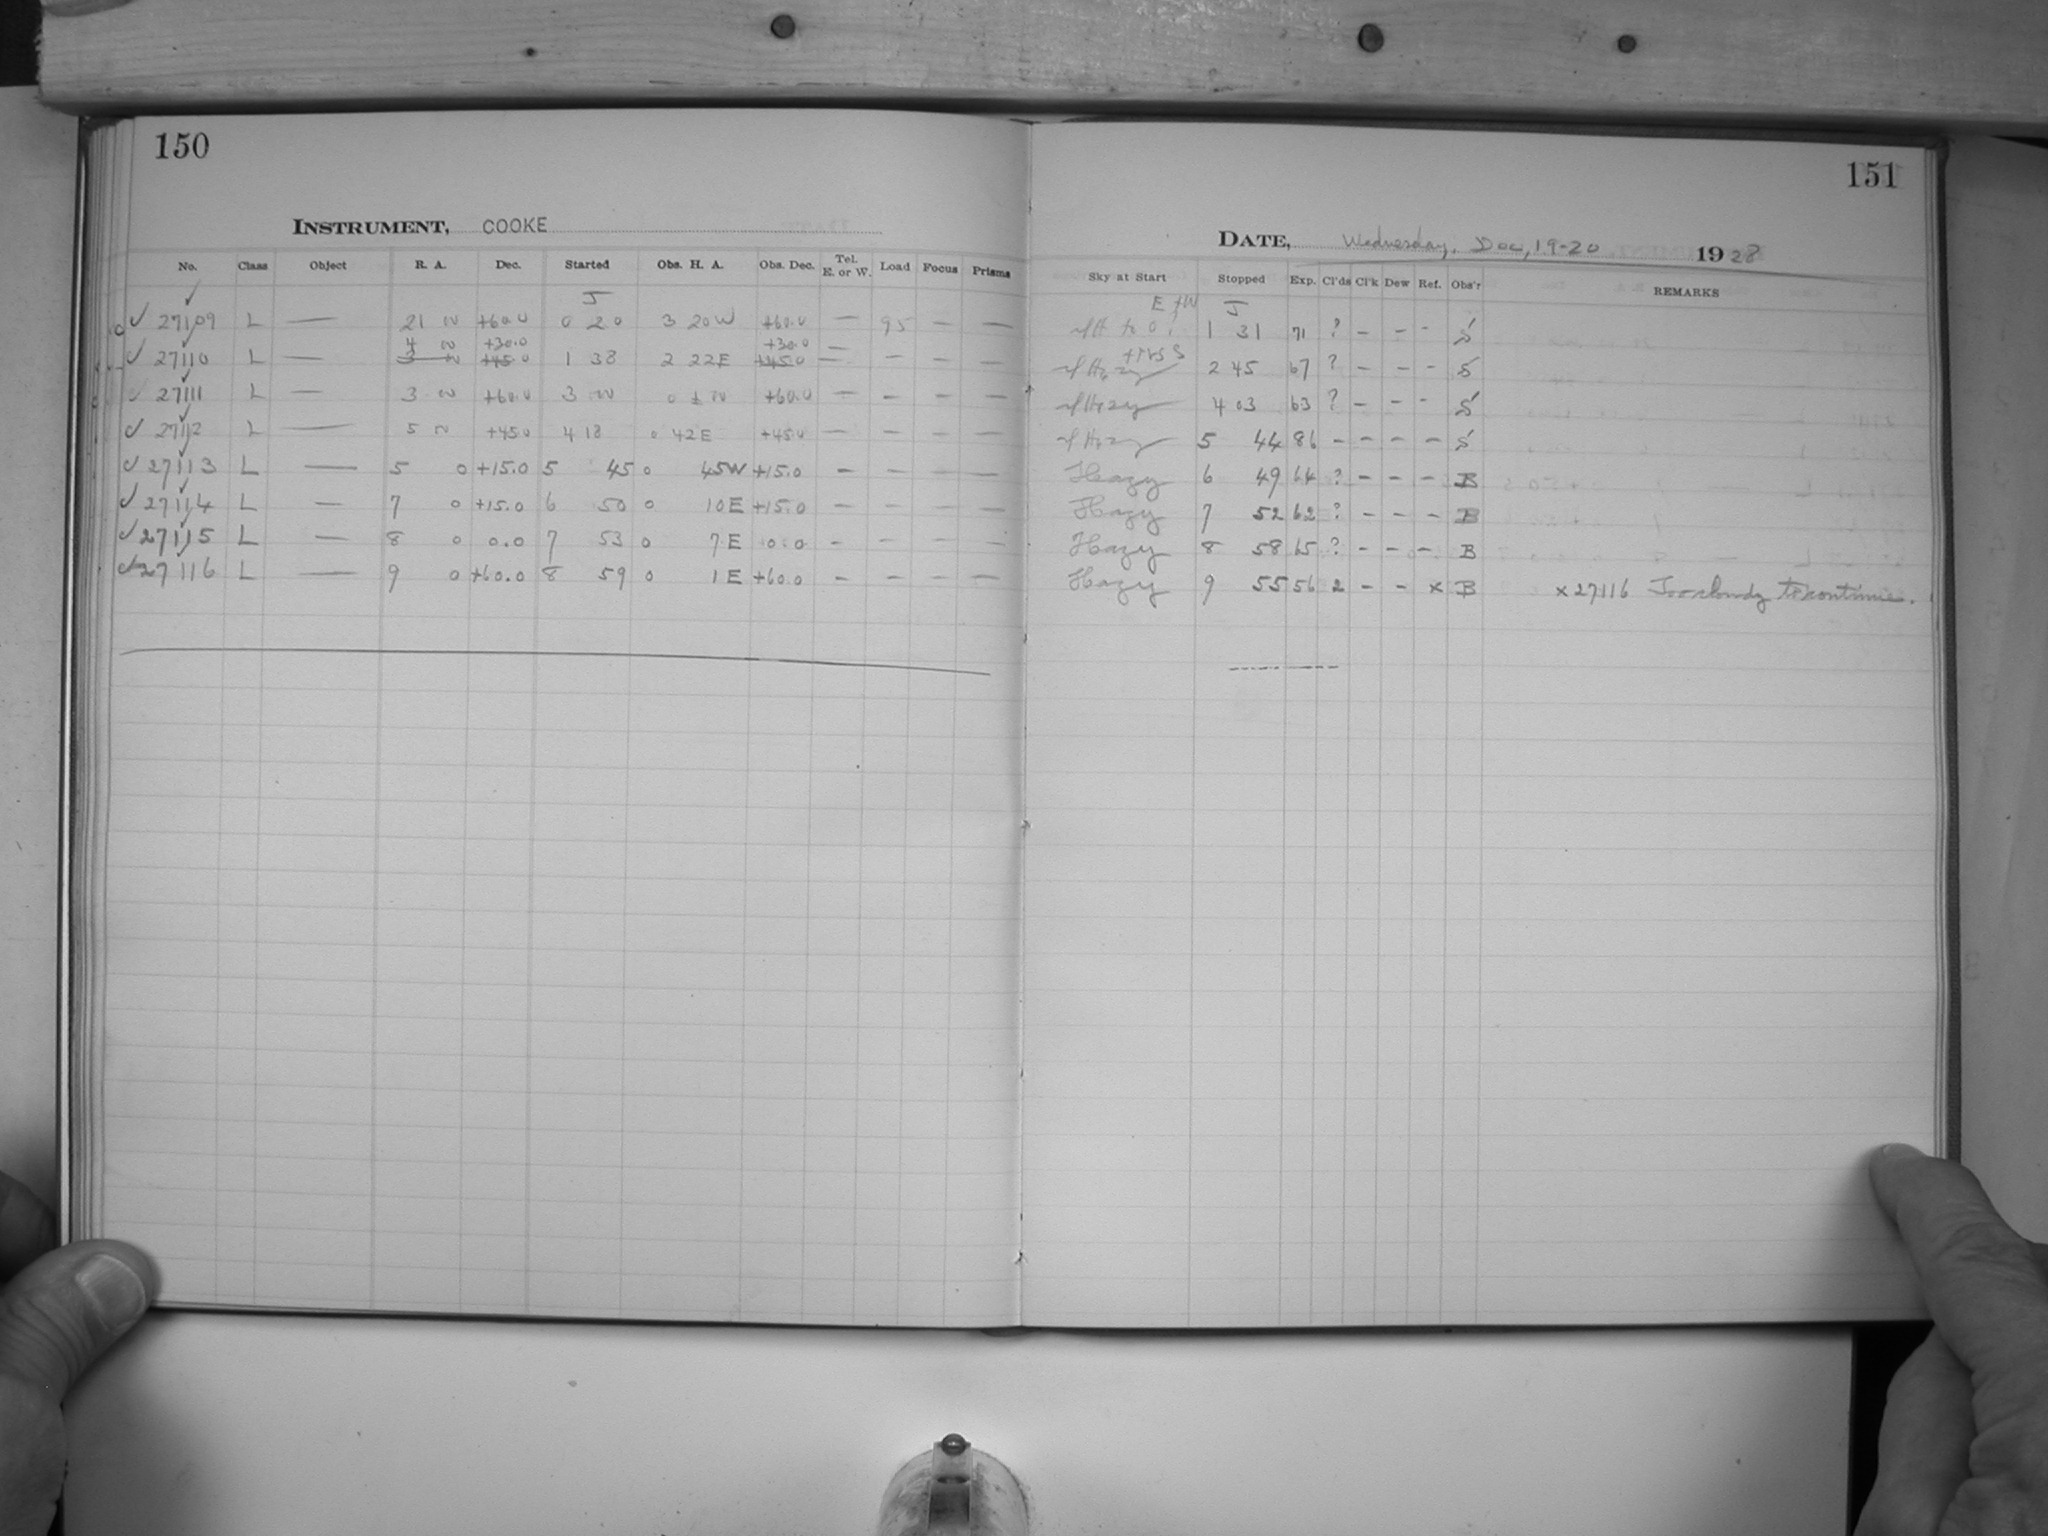 150
INSTRUMENT, COOKE
No. Class Object R. A. Dec. Started Obs. H. A. Obs. Dec. Tel. E. or W. Load Focus Prisms
J
✓ 27109 L — 21 +60.0 0 20 3 20W +60.0 — 95 — —
4 +30.0 +30.0 —
✓ 27110 L — 3 +45.0 1 38 2 22E +45.0 — — — —
✓ 27111 L — 3 +60.0 3 0 +60.0 — — — —
✓ 27112 L — 5 +45.0 4 18 0 42E +45.0 — — — —
✓ 27113 L — 5 0 +15.0 5 45 0 45W +15.0 — — — —
✓ 27114 L — 7 0 +15.0 6 50 0 10E +15.0 — — — —
✓ 27115 L — 8 0 0.0 7 53 0 7E 0.0 — — — —
✓ 27116 L — 9 0 +60.0 8 59 0 1E +60.0 — — — —
151
DATE, Wednesday, Dec, 19-20 1928
Sky at Start Stopped Exp. Cl'ds Cl'k Dew Ref. Obs'r REMARKS
E + W J
1 31 71 ? — — - S
2 45 67 ? — — - S
Hazy 4 03 63 ? — — - S
Hazy 5 44 86 — — — — S
Hazy 6 49 64 ? — — — B
Hazy 7 52 62 ? — — — B
Hazy 8 58 65 ? — — — B
Hazy 9 55 56 2 — — x B x 27116 Too cloudy to continue.